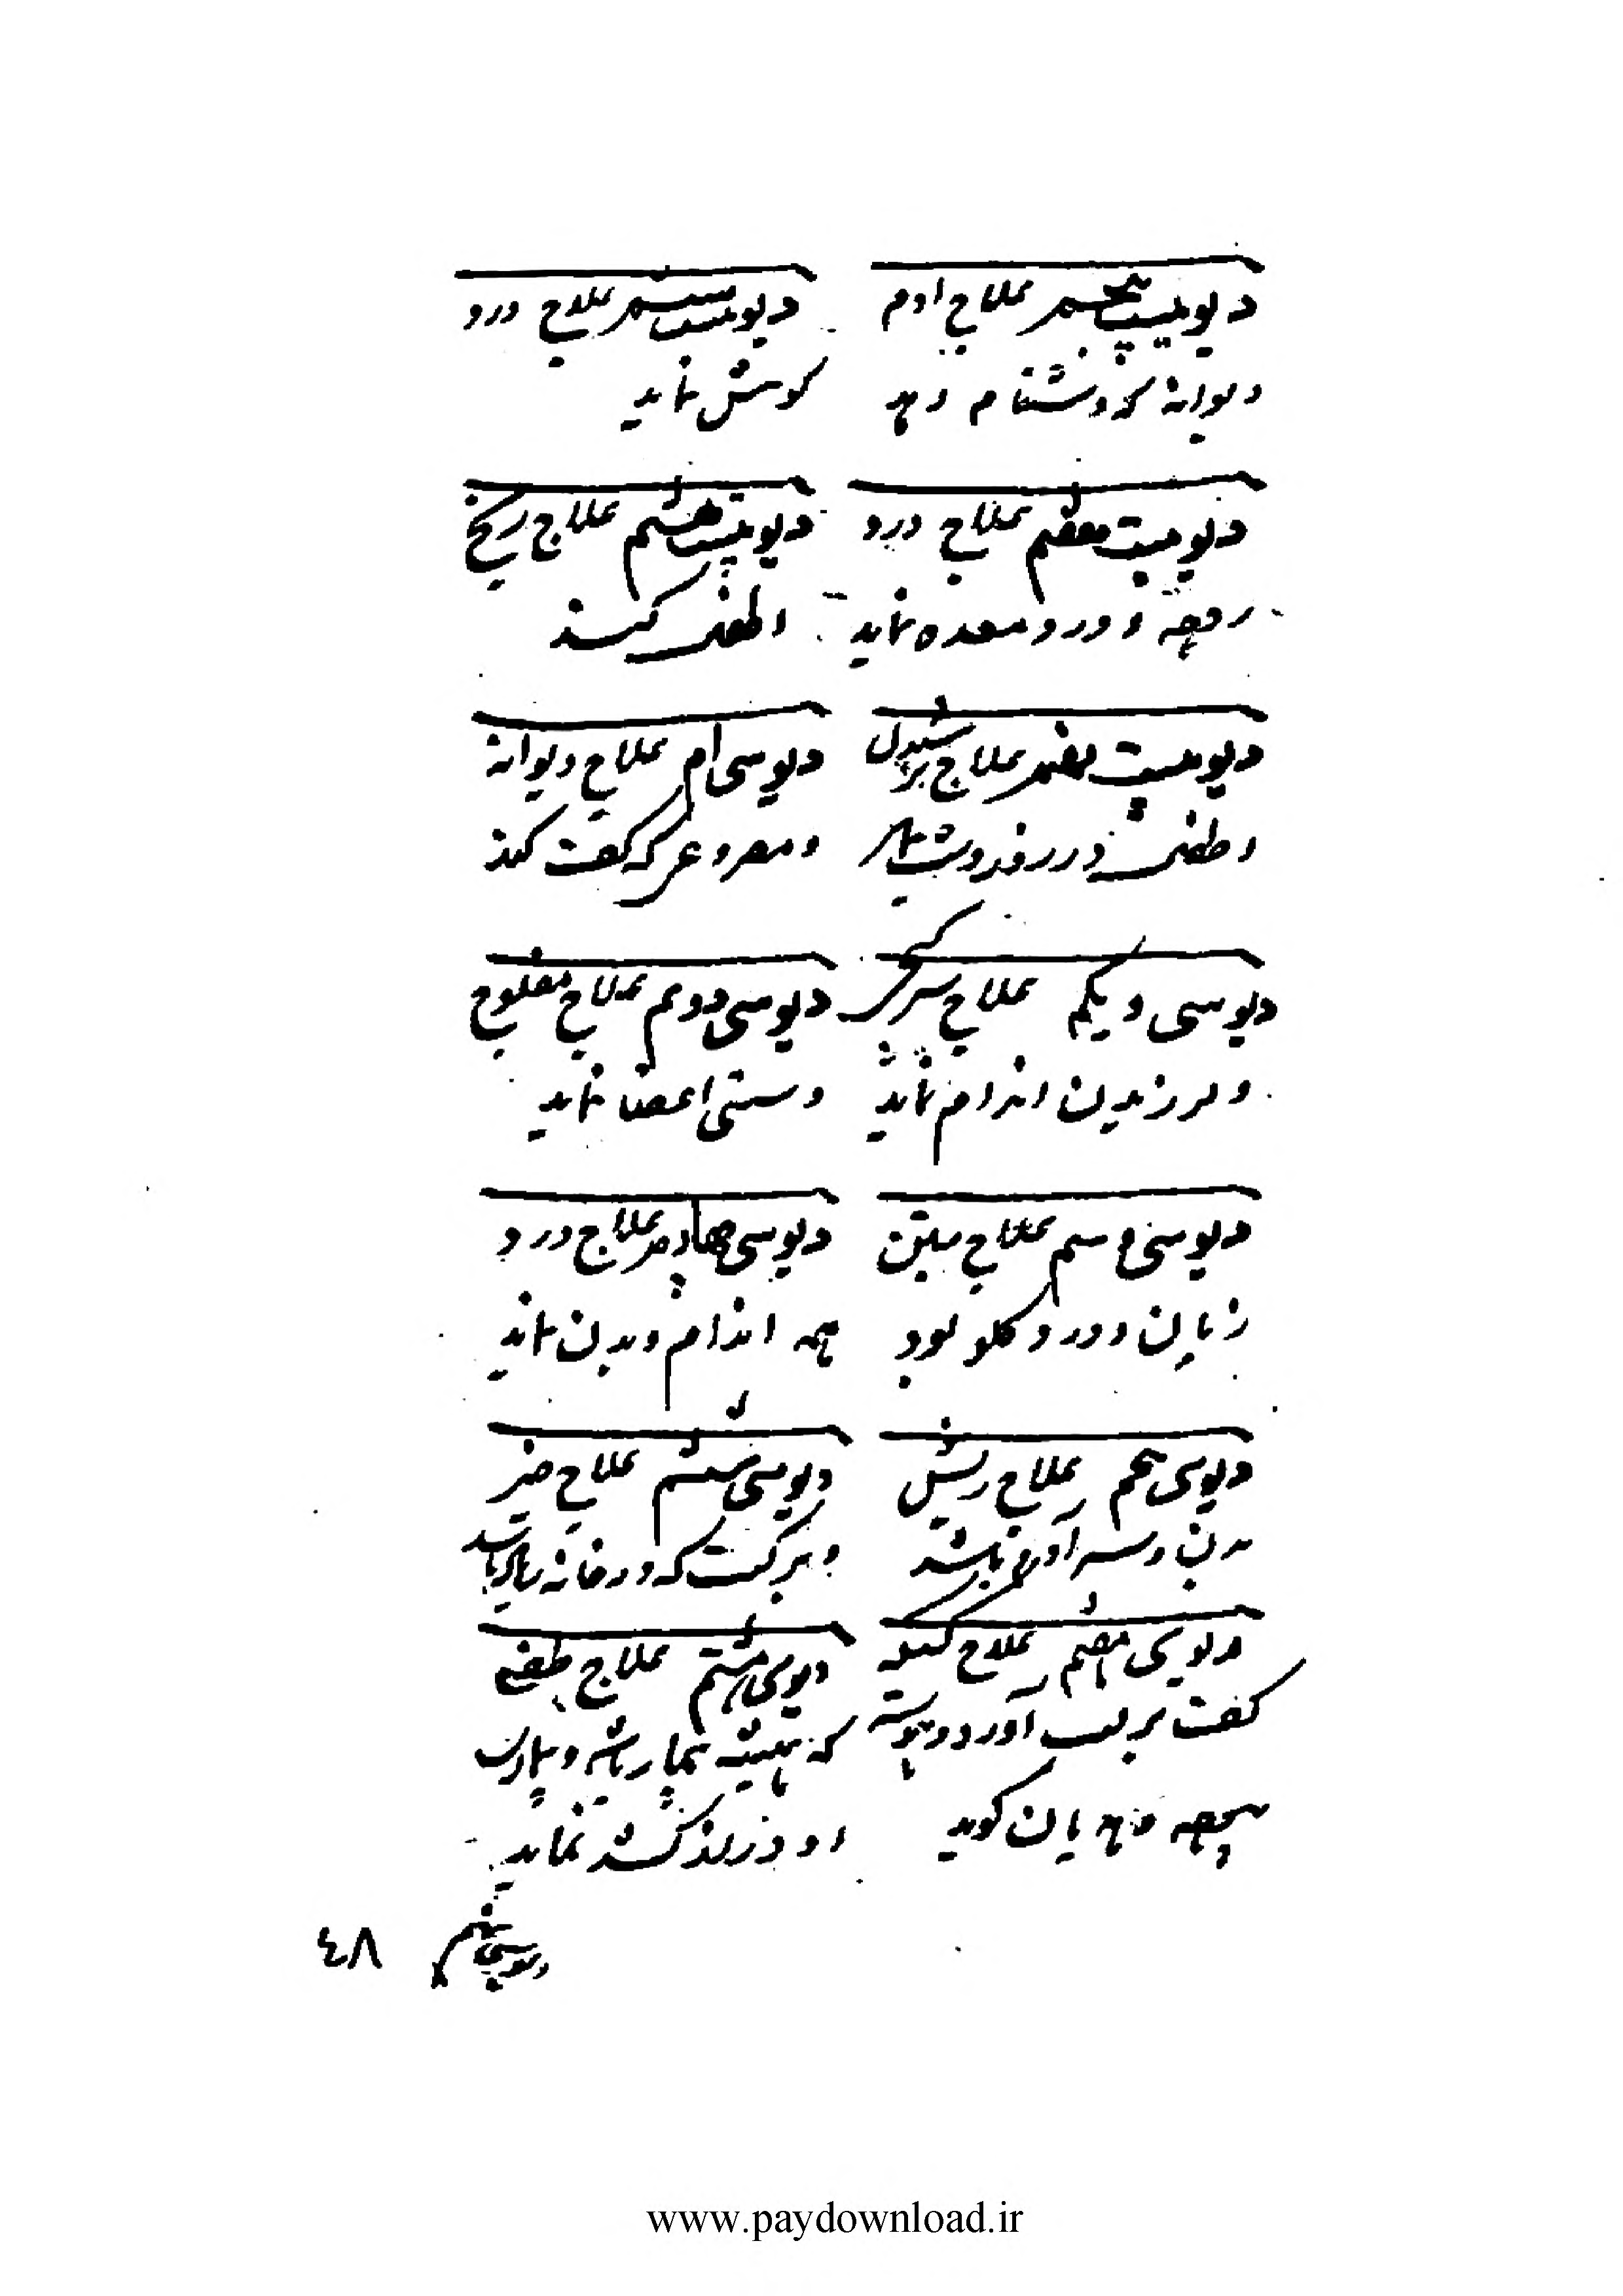 دیو بیست پنجم علاج ادم
دیوانه که دشنام دهد
دیو بیست ششم علاج درد
کوش نماید
دیو بیست هفتم علاج درد
و درد معده نماید
دیو بیست هشتم علاج
اطفل کند
دیو بیست نهم علاج
اطفل در روز و شب
دیو سی ام علاج دیوانه
و مصروع که کفت کند
دیو سی و یکم علاج سر
و لرزیدن اندام نماید
دیو سی دویم علاج مفلوج
و سستی اعضا نماید
دیو سی و سیم علاج
زبان و درد کلو بود
دیو سی چهارم علاج درد
همه اندام و بدن نماید
دیو سی پنجم علاج ریش
بدن و سر آدم باشد
دیو سی ششم علاج خیر
و برکت که در خانه
دیو سی هفتم علاج کسیکه
کفت بر لب آورد و پیوسته
هذیان کوید
دیو سی هشتم علاج طفلی
که همیشه بیمار باشد و
نماید
دیو سی نهم
٤٨
www.paydownload.ir